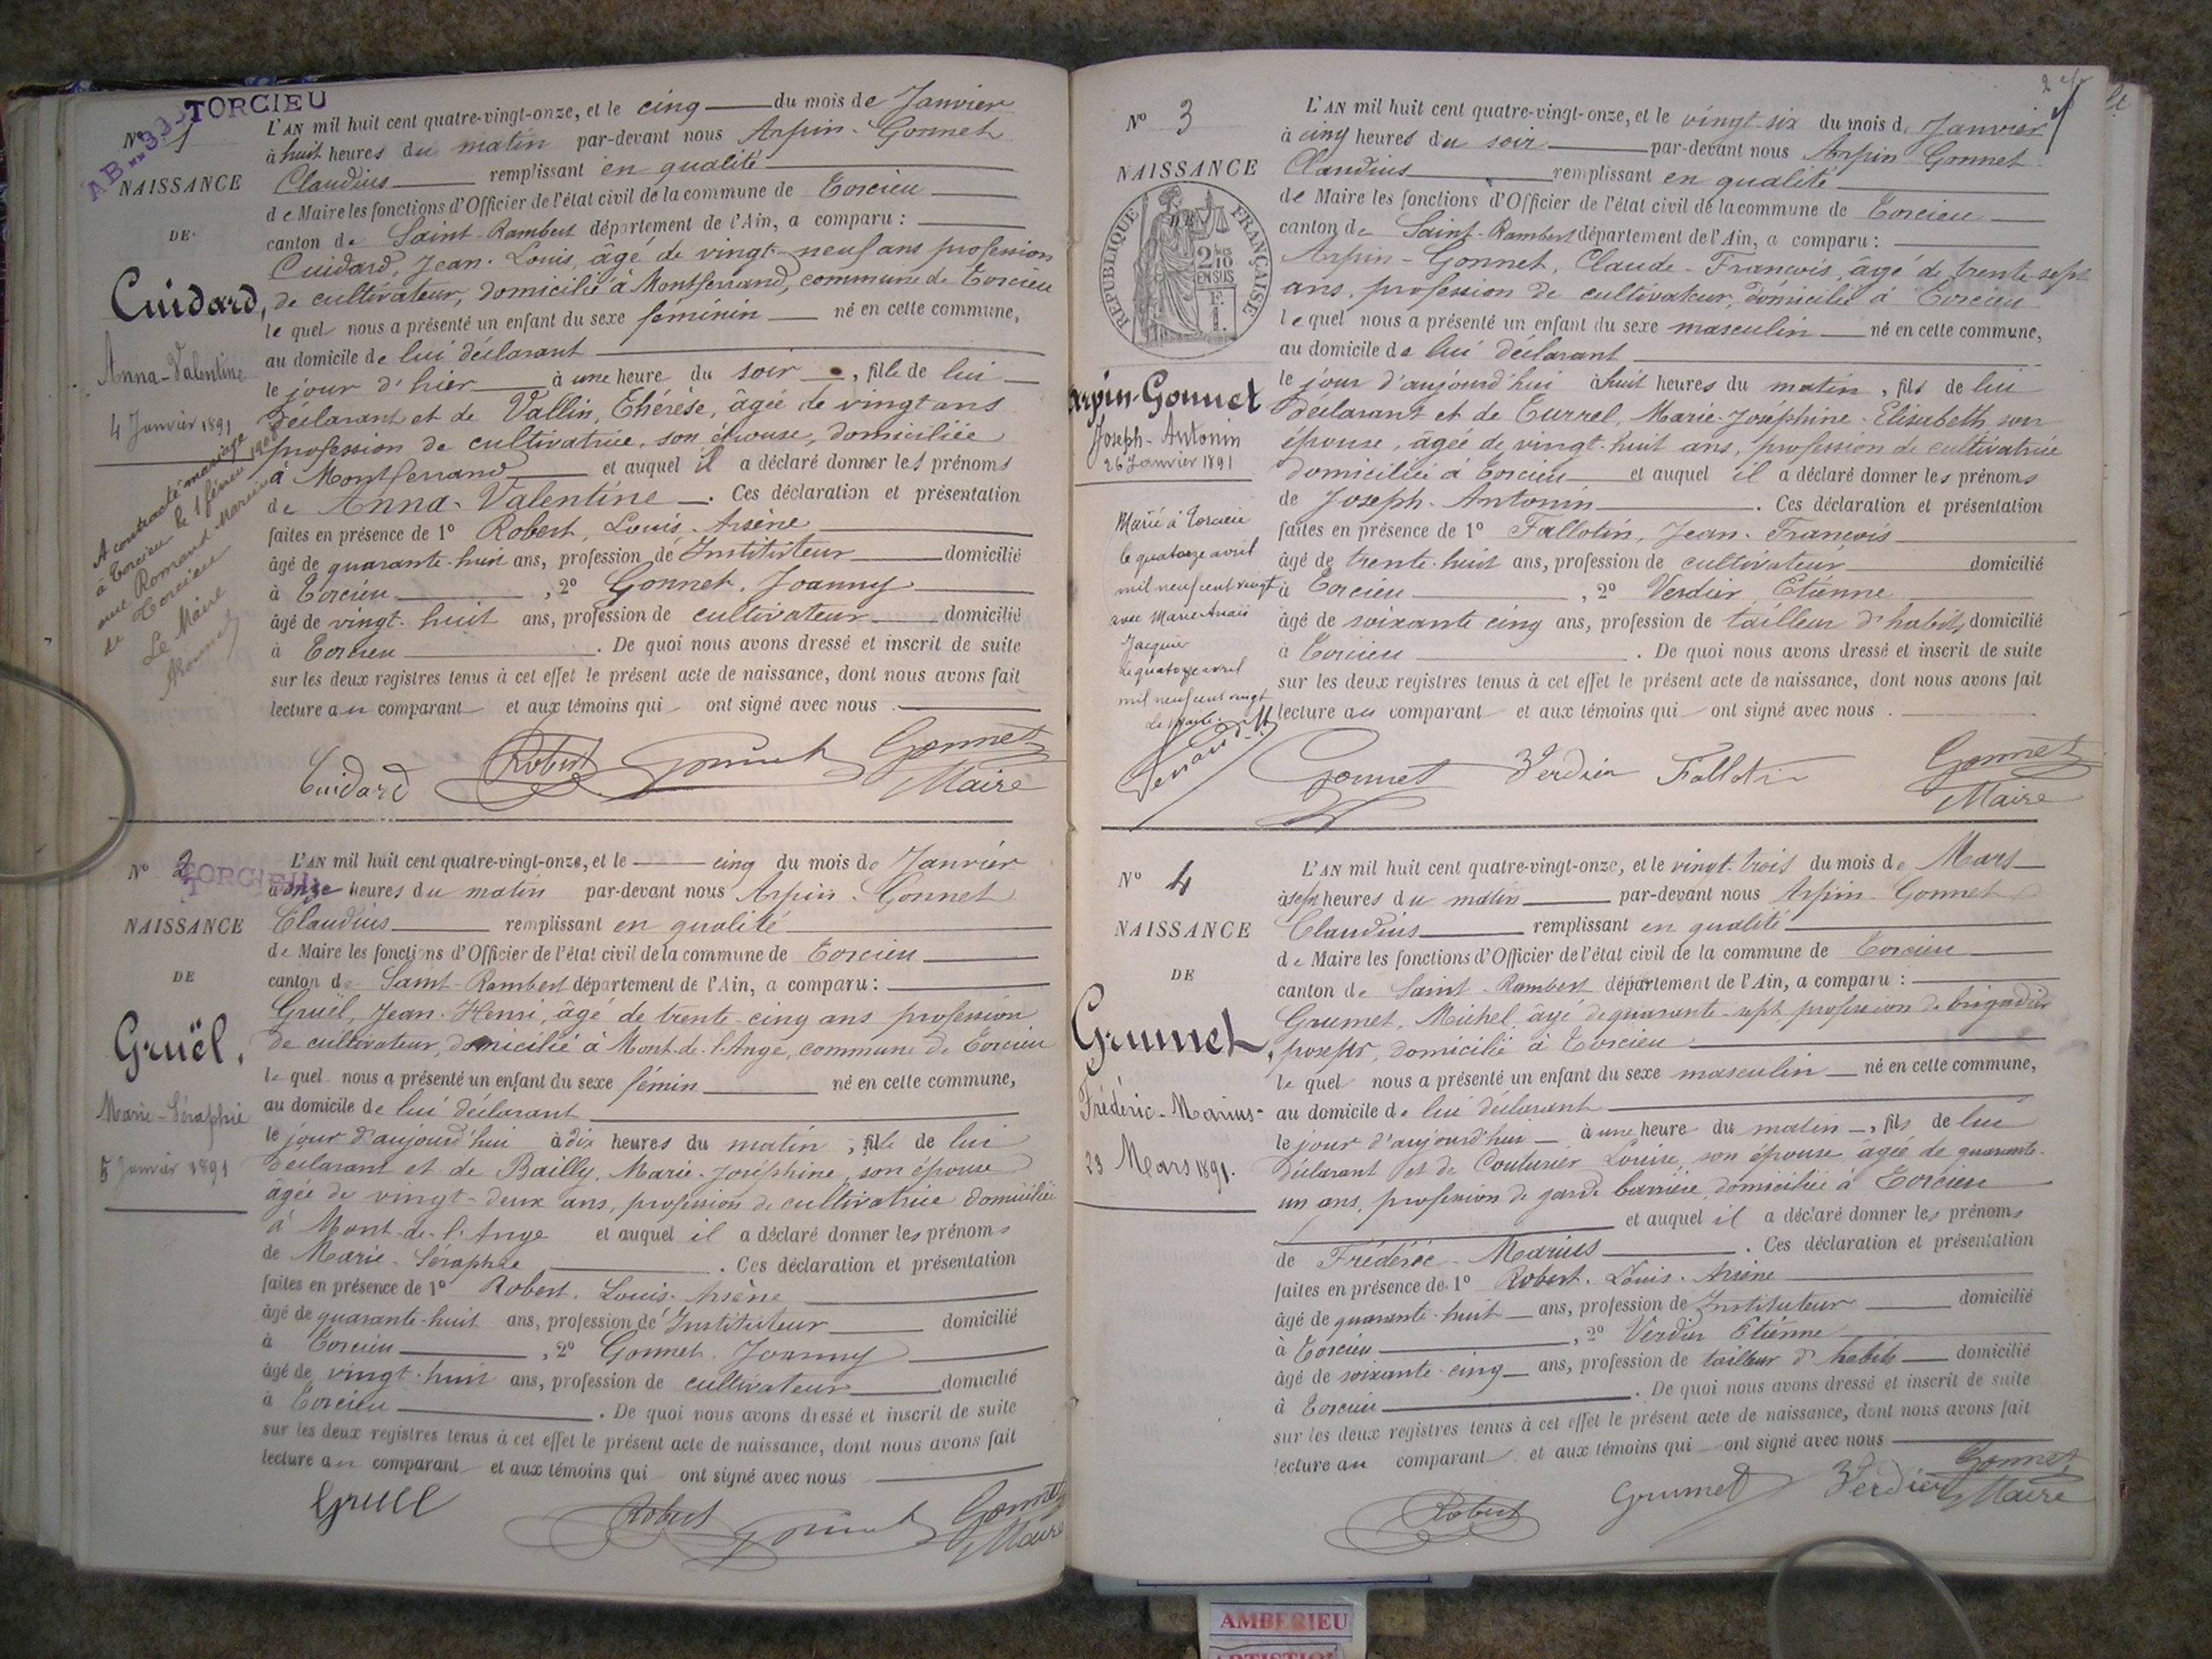 TORCIEU
AB**33
Nº 1
NAISSANCE
DE
Cuidard,
Anna-Valentine
4 Janvier 1891
A contracté mariage
à Torcieu le 1 février
avec Romand Marcius
de Torcieu
Le Maire
L'AN mil huit cent quatre-vingt-onze, et le cinq du mois de Janvier
à huit heures du matin par-devant nous Arpin-Gonnet
Claudius remplissant en qualité
de Maire les fonctions d'Officier de l'état civil de la commune de Torcieu
canton de Saint-Rambert département de l'Ain, a comparu :
Cuidard, Jean-Louis, âgé de vingt-neuf ans profession
de cultivateur, domicilié à Montferrand, commune de Torcieu
lequel nous a présenté un enfant du sexe féminin né en cette commune,
au domicile de lui déclarant
le jour d'hier à une heure du soir, fille de lui
déclarant et de Vallin, Thérèse, âgée de vingt ans
profession de cultivatrice, son épouse, domiciliée
à Montferrand et auquel il a déclaré donner les prénoms
de Anna-Valentine. Ces déclaration et présentation
faites en présence de 1º Robert, Louis-Arsène
âgé de quarante-huit ans, profession de Instituteur domicilié
à Torcieu, 2º Gonnet, Joanny
âgé de vingt-huit ans, profession de cultivateur domicilié
à Torcieu. De quoi nous avons dressé et inscrit de suite
sur les deux registres tenus à cet effet le présent acte de naissance, dont nous avons fait
lecture au comparant et aux témoins qui ont signé avec nous.
Cuidard Robert Gonnet Gonnet
Maire
Nº 2
TORCIEU
NAISSANCE
DE
Gruël,
Marie-Séraphie
5 Janvier 1891
L'AN mil huit cent quatre-vingt-onze, et le cinq du mois de Janvier
à onze heures du matin par-devant nous Arpin-Gonnet
Claudius remplissant en qualité
de Maire les fonctions d'Officier de l'état civil de la commune de Torcieu
canton de Saint-Rambert département de l'Ain, a comparu :
Gruël, Jean-Henri, âgé de trente-cinq ans profession
de cultivateur, domicilié à Mont-de-l'Ange, commune de Torcieu
lequel nous a présenté un enfant du sexe fémin né en cette commune,
au domicile de lui déclarant
le jour d'aujourd'hui à dix heures du matin, fille de lui
déclarant et de Bailly, Marie-Joséphine, son épouse
âgée de vingt-deux ans, profession de cultivatrice domiciliée
à Mont-de-l'Ange et auquel il a déclaré donner les prénoms
de Marie-Séraphie. Ces déclaration et présentation
faites en présence de 1º Robert, Louis-Arsène
âgé de quarante-huit ans, profession de Instituteur domicilié
à Torcieu, 2º Gonnet, Joanny
âgé de vingt-huit ans, profession de cultivateur domicilié
à Torcieu. De quoi nous avons dressé et inscrit de suite
sur les deux registres tenus à cet effet le présent acte de naissance, dont nous avons fait
lecture au comparant et aux témoins qui ont signé avec nous
Gruel Robert Gonnet Gonnet
Maire
Nº 3
NAISSANCE
RÉPUBLIQUE FRANÇAISE
2/10 EN SUS
Arpin-Gonnet
Joseph-Antonin
26 Janvier 1891
Marié à Torcieu
le quatorze avril
mil neuf cent vingt
avec Marie Anaïs
Jacquier
le quatorze avril
mil neuf cent vingt
Le Maire
L'AN mil huit cent quatre-vingt-onze, et le vingt-six du mois d Janvier
à cinq heures du soir par-devant nous Arpin-Gonnet
Claudius remplissant en qualité
de Maire les fonctions d'Officier de l'état civil de la commune de Torcieu
canton de Saint-Rambert département de l'Ain, a comparu :
Arpin-Gonnet, Claude-François, âgé de trente-sept
ans, profession de cultivateur, domicilié à Torcieu
lequel nous a présenté un enfant du sexe masculin né en cette commune,
au domicile de lui déclarant
le jour d'aujourd'hui à huit heures du matin, fils de lui
déclarant et de Turrel, Marie-Joséphine-Elisabeth, son
épouse, âgée de vingt-huit ans, profession de cultivatrice
domiciliée à Torcieu et auquel il a déclaré donner les prénoms
de Joseph-Antonin. Ces déclaration et présentation
faites en présence de 1º Fallotin, Jean-François
âgé de trente-huit ans, profession de cultivateur domicilié
à Torcieu, 2º Verdier Etienne
âgé de soixante cinq ans, profession de tailleur d'habits domicilié
à Torcieu. De quoi nous avons dressé et inscrit de suite
sur les deux registres tenus à cet effet le présent acte de naissance, dont nous avons fait
lecture au comparant et aux témoins qui ont signé avec nous.
Gonnet Verdier Fallotin Gonnet
Maire
Nº 4
NAISSANCE
DE
Grumet,
Frédéric-Marius
23 Mars 1891.
L'AN mil huit cent quatre-vingt-onze, et le vingt-trois du mois de Mars
à sept heures du matin par-devant nous Arpin-Gonnet
Claudius remplissant en qualité
de Maire les fonctions d'Officier de l'état civil de la commune de Torcieu
canton de Saint-Rambert département de l'Ain, a comparu :
Grumet, Michel, âgé de quarante-sept profession de brigadier
poseur, domicilié à Torcieu
lequel nous a présenté un enfant du sexe masculin né en cette commune,
au domicile de lui déclarant
le jour d'aujourd'hui à une heure du matin, fils de lui
déclarant et de Couturier Louise, son épouse âgée de quarante-
un ans, profession de garde barrière, domiciliée à Torcieu
et auquel il a déclaré donner les prénoms
de Frédéric-Marius. Ces déclaration et présentation
faites en présence de 1º Robert, Louis-Arsène
âgé de quarante-huit ans, profession de Instituteur domicilié
à Torcieu, 2º Verdier Etienne
âgé de soixante-cinq ans, profession de tailleur d'habits domicilié
à Torcieu. De quoi nous avons dressé et inscrit de suite
sur les deux registres tenus à cet effet le présent acte de naissance, dont nous avons fait
lecture au comparant et aux témoins qui ont signé avec nous
Robert Grumet Verdier Gonnet
Maire
AMBERIEU